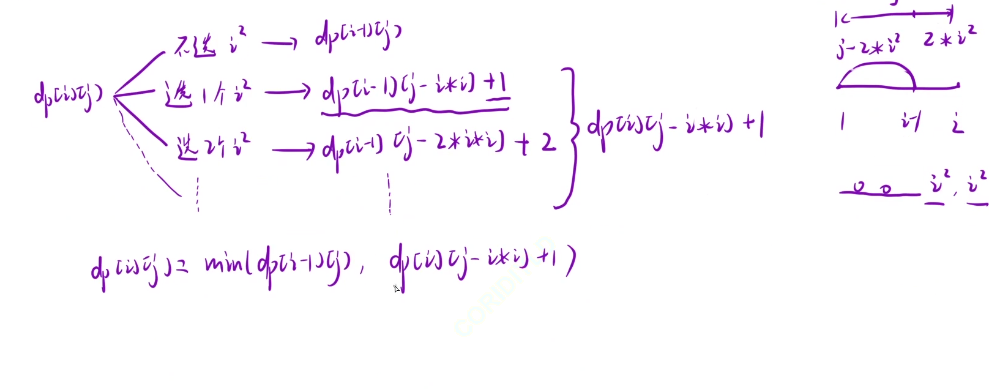 不选 i² → dp[i-1][j]
dp[i][j]
选 1个 i² → dp[i-1][j-i*i]+1
选 2个 i² → dp[i-1][j-2*i*i]+2
dp[i][j-i*i]+1
dp[i][j]= min(dp[i-1][j], dp[i][j-i*i]+1)
j-2*i² 2*i²
1 i-1 i
i², i²